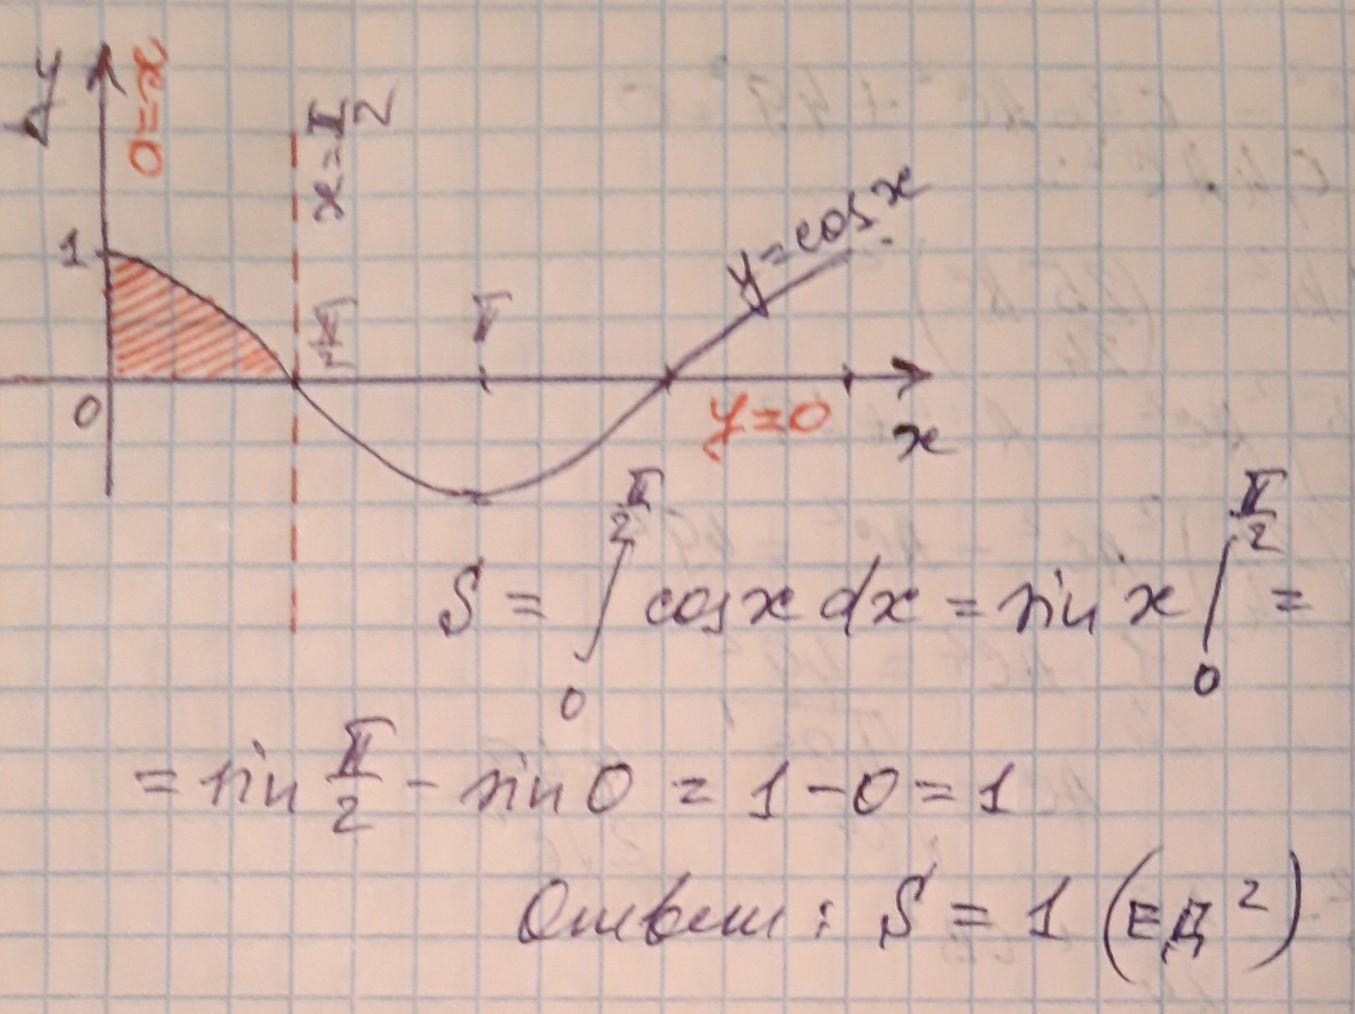 y
x=0
x=π/2
1
y=cos x
π
0
y=0
x
S = ∫₀^(π/2) cos x dx = sin x |₀^(π/2) =
= sin π/2 - sin 0 = 1 - 0 = 1
Ответ: S = 1 (ЕД²)